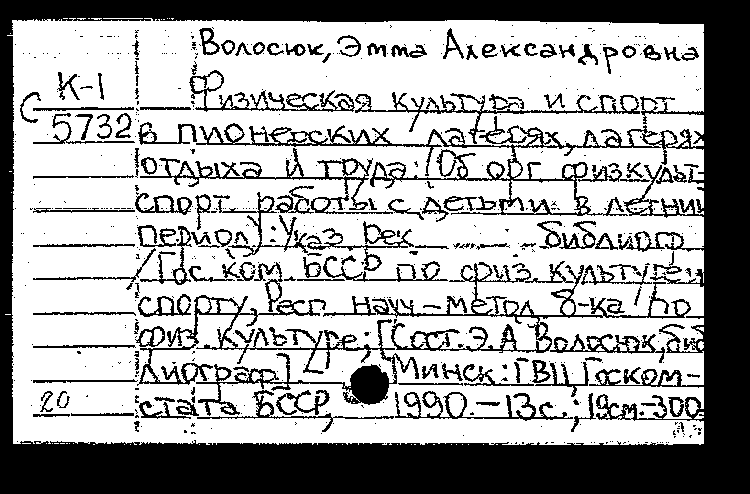 Волосюк, Эмма Александровна
К-1
5732
Физическая культура и спорт
в пионерских лагерях, лагерях
отдыха и труда: (Об орг. физкульт-
спорт. работы с детьми в летний
период): Указ. рек. библиогр.
/ Гос. ком. БССР по физ. культуре и
спорту, Респ. науч.-метод. б-ка по
физ. культуре; [Сост. Э.А Волосюк, биб
лиограф]. Минск: ГВЦ Госком-
20
стата БССР, 1990. - 13с.; 19см. - 300